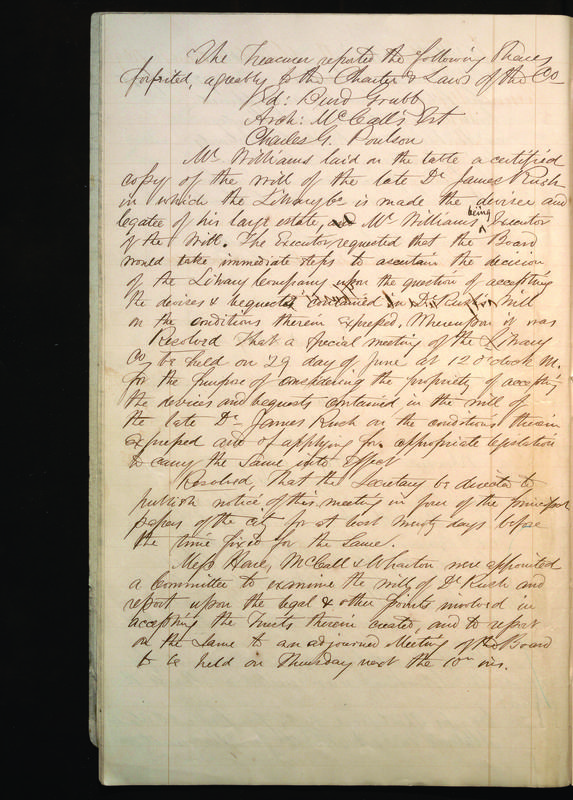 The Treasurer reported the following Shares
forfeited, agreeably to the Charter & Laws of the Co
Ed: Burd Grubb
Arch: McCall's Est
Charles G. Poulson
Mr Williams laid on the table a certified
copy of the will of the late Dr James Rush
in which the Library Co is made the devisee and
legatee of his large estate, and Mr Williams being Executor
of the Will. The Executor requested that the Board
would take immediate steps to ascertain the decision
of the Library Company upon the question of accepting
the devises & bequests contained in Dr Rush's Will
on the conditions therein expressed. Whereupon it was
Resolved That a special meeting of the Library
Co be held on 29 day of June at 12 O'clock M.
for the purpose of considering the propriety of accepting
the devices and bequests contained in the will of
the late Dr James Rush on the conditions therein
expressed and of applying for appropriate legislation
to carry the same into effect
Resolved, That the Secretary be directed to
publish notice of this meeting in four of the principal
papers of the city for at least twenty days before
the time fixed for the same.
Messs Hare, McCall & Wharton were appointed
a Committee to examine the will of Dr Rush and
report upon the legal & other points involved in
accepting the Trusts therein created, and to report
on the same to an adjourned Meeting of the Board
to be held on Thursday next the 10th ins.